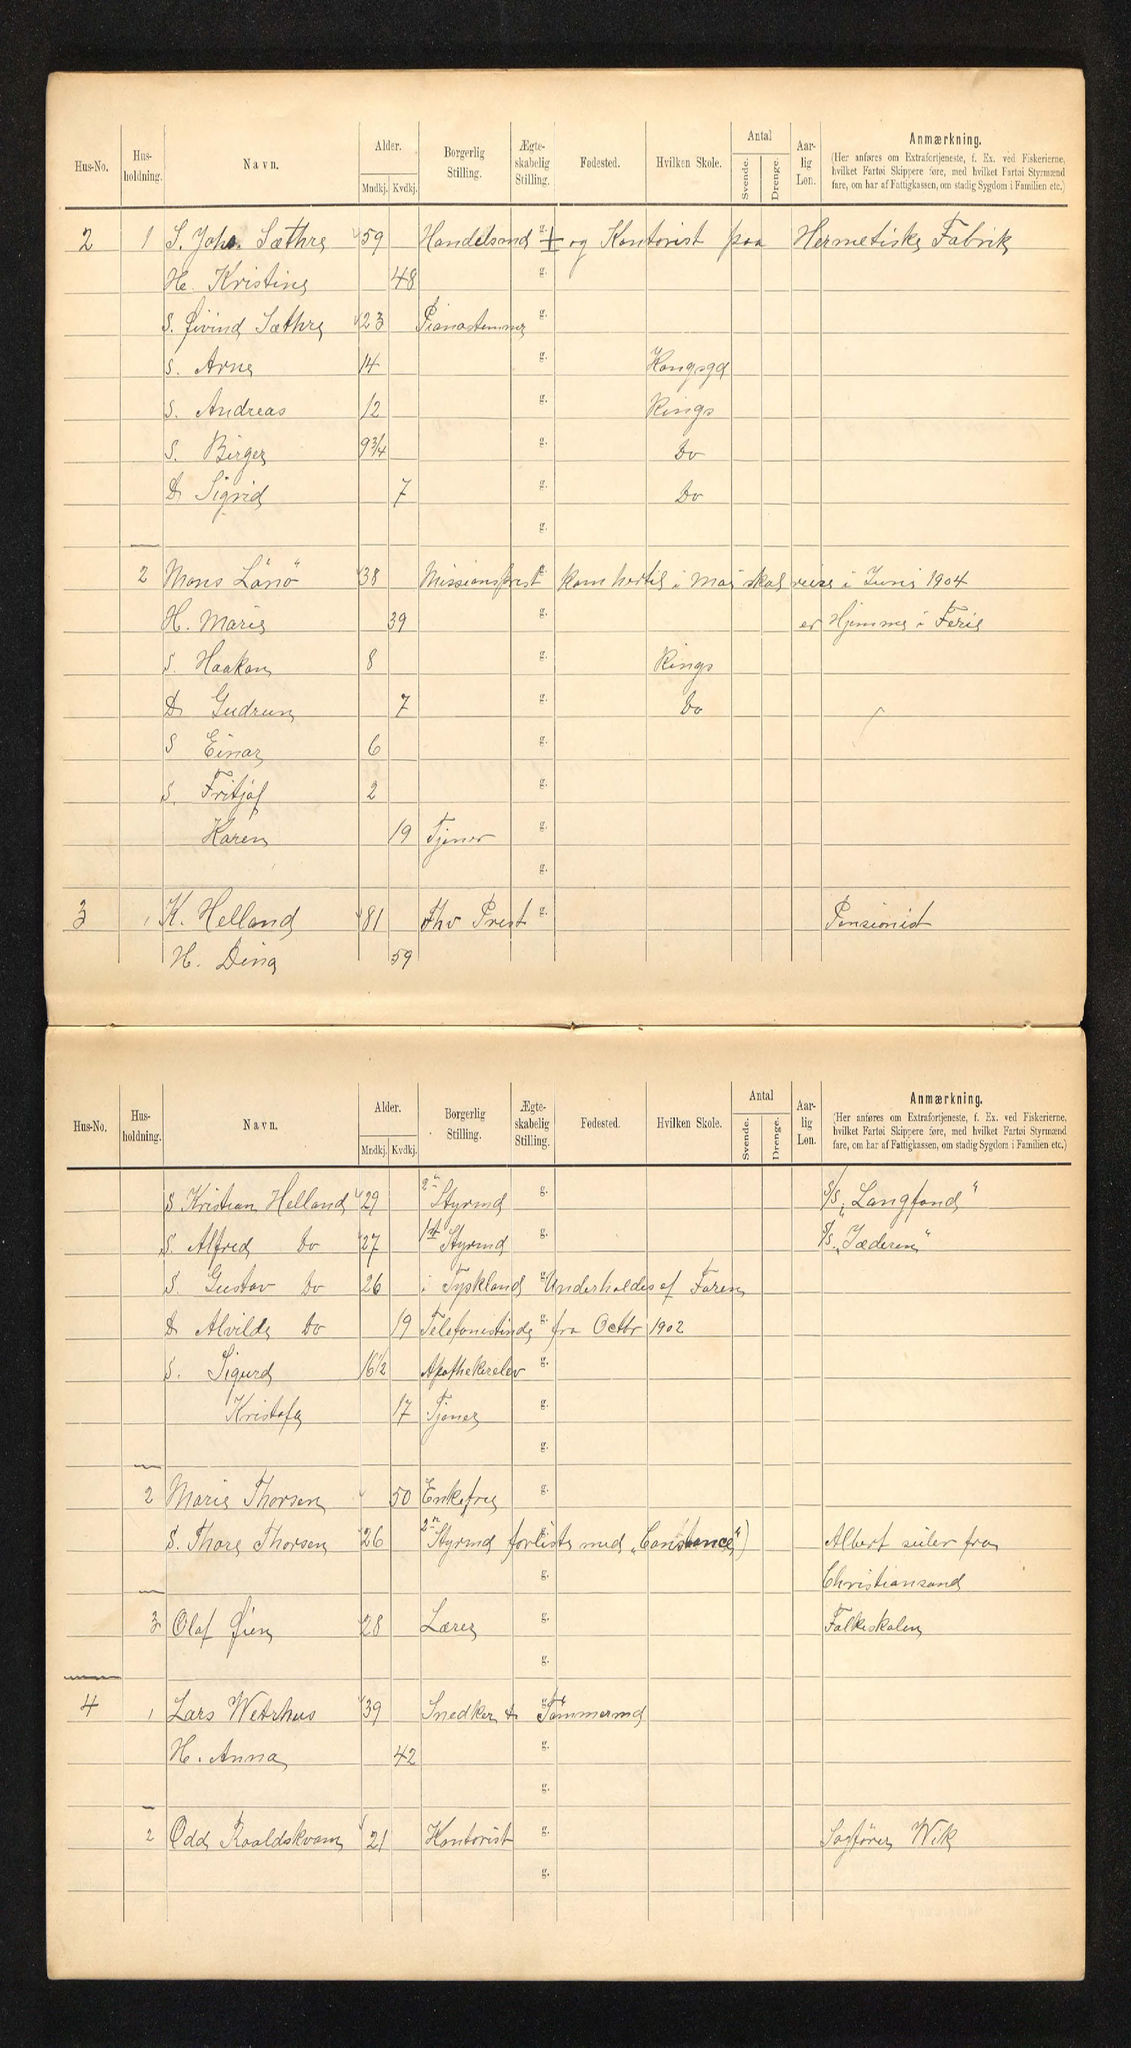 Hus-No. Hus-holdning. Navn. Alder. Mndkj. Kvdkj. Borgerlig Stilling. Ægte-skabelig Stilling. Fødested. Hvilken Skole. Antal Svende. Drenge. Aar-lig Løn. Anmærkning.
(Her anføres om Extrafortjeneste, f. Ex. ved Fiskerierne,
hvilket Fartøi Skippere føre, med hvilket Fartøi Styrmænd
fare, om har af Fattigkassen, om stadig Sygdom i Familien etc.)
2 1 S. Johs. Sæthre 59 Handelsmd g. + og Kontorist paa Hermetiske Fabrik
H. Kristine 48 g.
S. Øivind Sæthre 23 Pianostemmer g.
S. Arne 14 g. Kongsgd
S. Andreas 12 g. Rings
S. Birger 9 3/4 g. Do
D Sigrid 7 g. Do
g.
2 Mons Lönö 38 Missionsprest g. kom hertil i Mai skal reise i Juni 1904
H. Marie 39 g. er Hjemme i Ferie
S. Haakon 8 g. Rings
D Gudrun 7 g. Do
S Einar 6 g.
S. Fritjof 2 g.
Karen 19 Tjener g.
g.
3 1 K. Helland 81 Fhv Prest g. Pensionist
H. Dina 59
Hus-No. Hus-holdning. Navn. Alder. Mndkj. Kvdkj. Borgerlig Stilling. Ægte-skabelig Stilling. Fødested. Hvilken Skole. Antal Svende. Drenge. Aar-lig Løn. Anmærkning.
(Her anføres om Extrafortjeneste, f. Ex. ved Fiskerierne,
hvilket Fartøi Skippere føre, med hvilket Fartøi Styrmænd
fare, om har af Fattigkassen, om stadig Sygdom i Familien etc.)
S Kristian Helland 29 2n Styrmd g. S/S. „Langfond"
S. Alfred Do 27 1st Styrmd g. S/S. „Jæderen"
S. Gustav Do 26 i Tyskland g. Underholdes af Faren
D Alvilde Do 19 Telefonistinde g. fra Octbr 1902
S. Sigurd 16 1/2 Apothekerelev g.
Kristofa 17 Tjener g.
g.
2 Marie Thorsen 50 Enkefru g.
S. Thore Thorsen 26 2n Styrmd forliste med „Constance") Albert seiler fra
g. Christiansand
3 Olaf Øien 28 Lærer g. Folkeskolen
g.
4 1 Lars Wetrhus 39 Snedker & g. Tömmermd
H. Anna 42 g.
g.
2 Odd Roaldskvam 21 Kontorist g. Sagförer Wik
g.